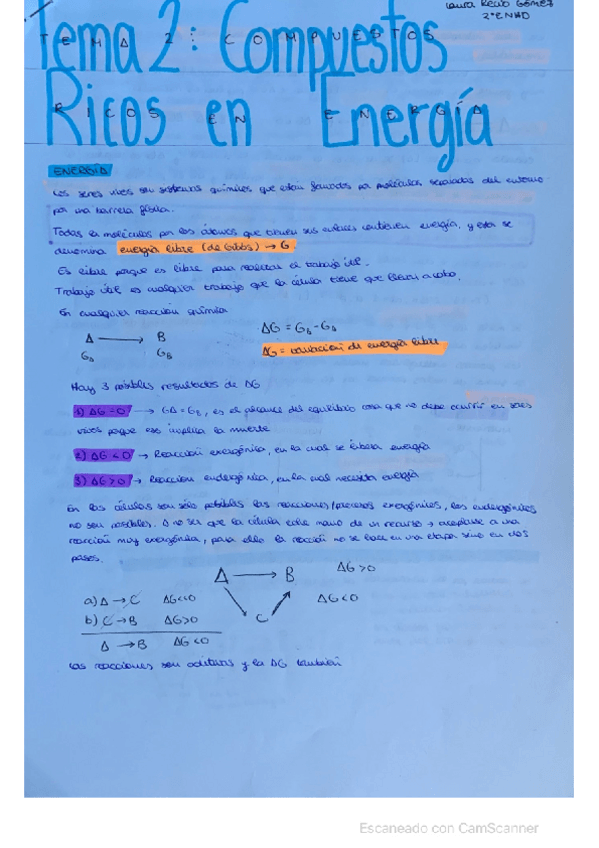 Laura Recio Gómez
2º ENHD
Tema 2: Compuestos
TEMA 2: COMPUESTOS
Ricos en Energía
RICOS EN ENERGÍA
ENERGÍA
Los seres vivos son sistemas químicos que están formados por moléculas separadas del entorno
por una barrera física.
Todas las moléculas por los átomos que tienen sus enlaces contienen energía, y esta se
denomina energía libre (de Gibbs) → G.
Es libre porque es libre para realizar el trabajo útil.
Trabajo útil es cualquier trabajo que la célula tiene que llevar a cabo.
En cualquier reacción química
A → B
G_A G_B
ΔG = G_B - G_A
ΔG = variación de energía libre
Hay 3 posibles resultados de ΔG
1) ΔG = 0 → GA = GB, es el alcance del equilibrio cosa que no debe ocurrir en seres
vivos porque eso implica la muerte
2) ΔG < 0 → Reacción exergónica, en la cual se libera energía
3) ΔG > 0 → Reacción endergónica, en la cual necesita energía
En las células son sólo posibles las reacciones/procesos exergónicos, los endergónicos
no son posibles. A no ser que la célula eche mano de un recurso → acoplarse a una
reacción muy exergónica, para ello la reacción no se hace en una etapa sino en dos
pasos.
A → B ΔG > 0
C ΔG < 0
a) A → C ΔG << 0
b) C → B ΔG > 0
A → B ΔG < 0
Las reacciones son aditivas y la ΔG también
Escaneado con CamScanner